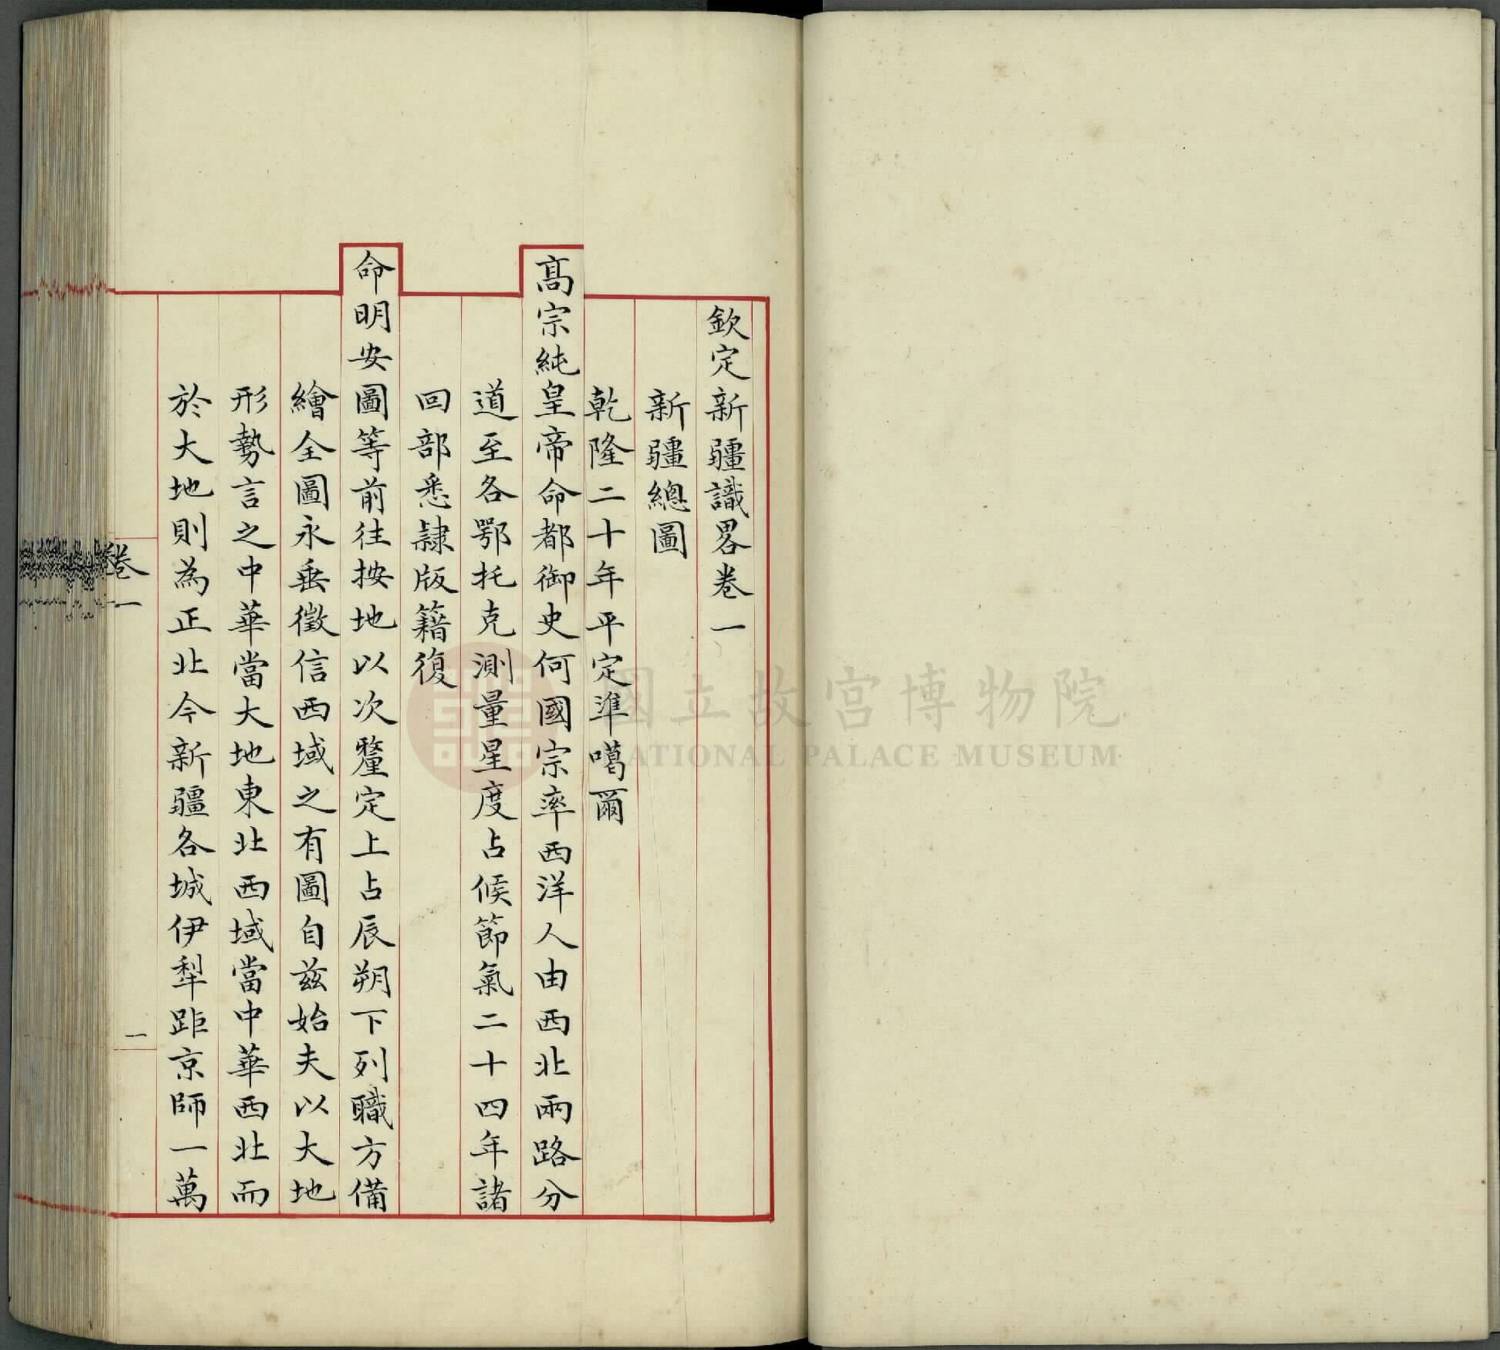 欽定新疆識畧卷一
新疆總圖
乾隆二十年平定準噶爾
髙宗純皇帝命都御史何國宗率西洋人由西北兩路分
道至各鄂托克測量星度占候節氣二十四年諸
回部悉隸版籍復
命明安圖等前往按地以次釐定上占辰朔下列職方備
繪全圖永垂徵信西域之有圖自茲始夫以大地
形勢言之中華當大地東北西域當中華西北而
於大地則為正北今新疆各城伊犁距京師一萬
卷一
一
國立故宮博物院
NATIONAL PALACE MUSEUM